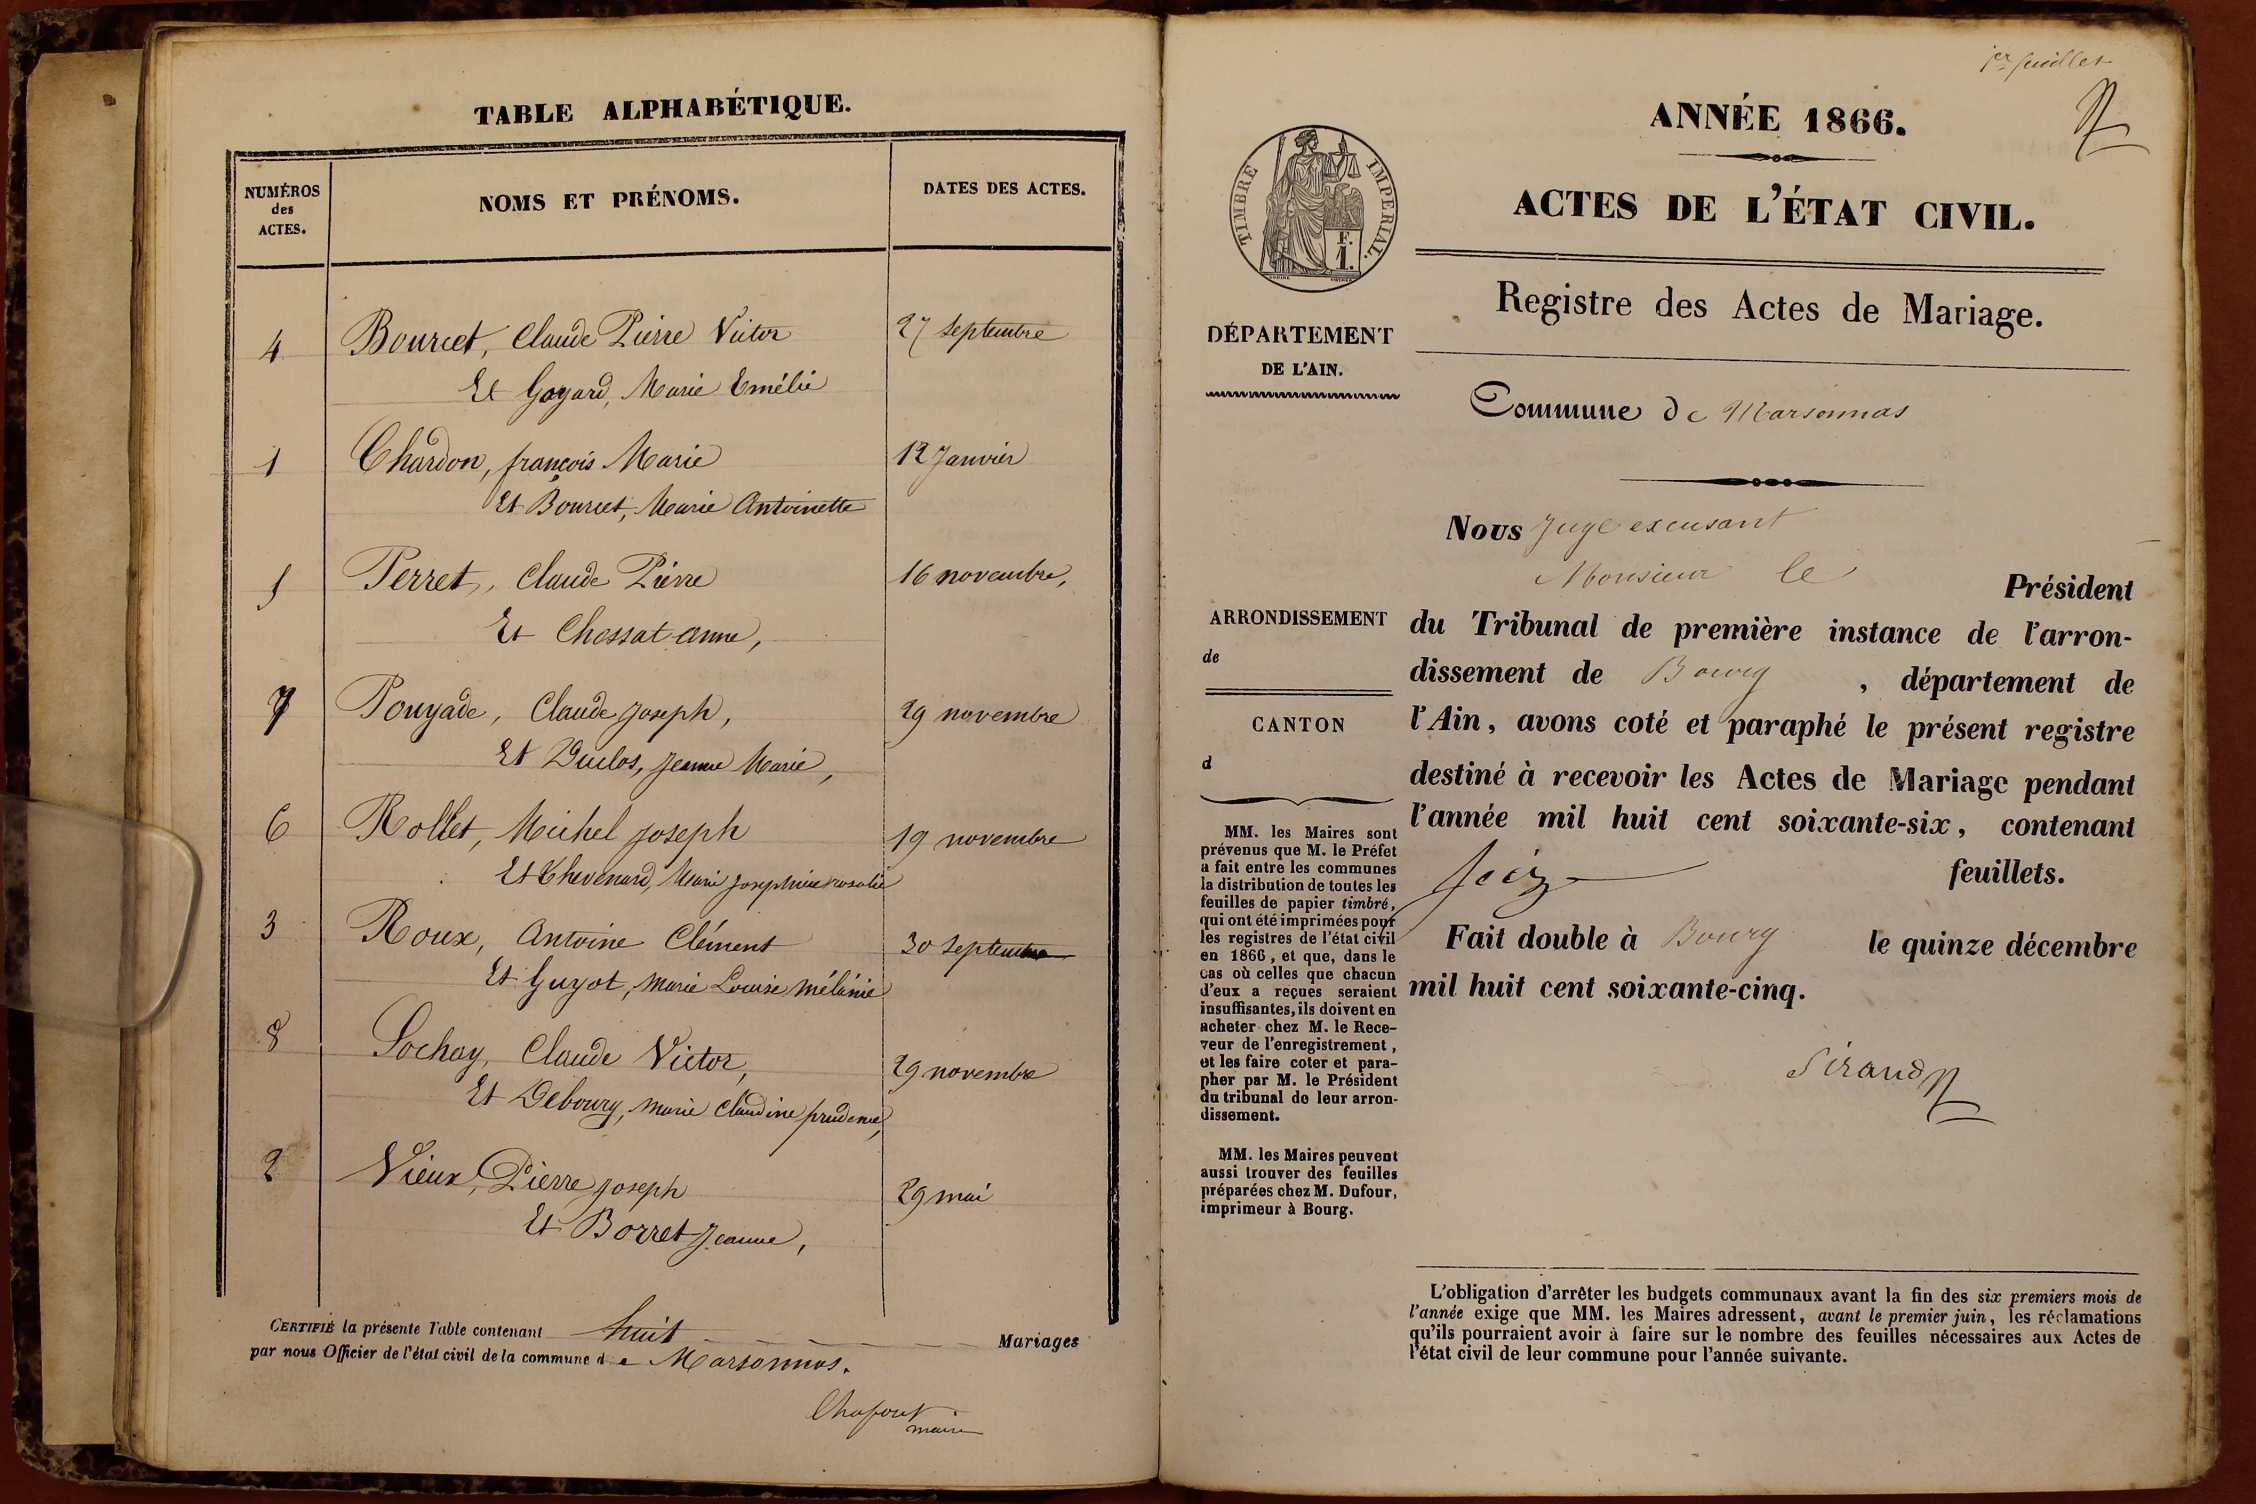 TABLE ALPHABÉTIQUE.
NUMÉROS
des
ACTES.
NOMS ET PRÉNOMS.
DATES DES ACTES.
4 Bourcet, Claude Pierre Victor 27 septembre
Et Goyard, Marie Emélie
1 Chardon, françois Marie 12 Janvier
Et Bourcet, Marie Antoinette
5 Perret, Claude Pierre 16 novembre,
Et Chossat anne,
7 Pouyade, Claude Joseph, 29 novembre
Et Duclos, Jeanne Marie,
6 Rollet, Michel Joseph 19 novembre
Et Chevenard, Marie Josephine rosalie
3 Roux, Antoine Clément 30 septembre
Et Guyot, Marie Louise Mélánie
8 Sochay, Claude Victor, 29 novembre
Et Debourg, marie Claudine prudence,
2 Vieux, Pierre Joseph 29 mai
Et Borret Jeanne,
CERTIFIÉ la présente Table contenant huit Mariages
par nous Officier de l'état civil de la commune de Marsonnas.
Chafout
maire
1er feuillet
ANNÉE 1866.
ACTES DE L'ÉTAT CIVIL.
TIMBRE IMPERIAL.
F.
1.
Registre des Actes de Mariage.
DÉPARTEMENT
DE L'AIN.
Commune de Marsonnas
Nous Juge excusant
Monsieur le Président
ARRONDISSEMENT
de
CANTON
d
du Tribunal de première instance de l'arron-
dissement de Bourg, département de
l'Ain, avons coté et paraphé le présent registre
destiné à recevoir les Actes de Mariage pendant
l'année mil huit cent soixante-six, contenant
feuillets.
Fait double à Bourg le quinze décembre
mil huit cent soixante-cinq.
Siraud
MM. les Maires sont
prévenus que M. le Préfet
a fait entre les communes
la distribution de toutes les
feuilles de papier timbré,
qui ont été imprimées pour
les registres de l'état civil
en 1866, et que, dans le
cas où celles que chacun
d'eux a reçues seraient
insuffisantes, ils doivent en
acheter chez M. le Rece-
veur de l'enregistrement,
et les faire coter et para-
pher par M. le Président
du tribunal de leur arron-
dissement.
MM. les Maires peuvent
aussi trouver des feuilles
préparées chez M. Dufour,
imprimeur à Bourg.
L'obligation d'arrêter les budgets communaux avant la fin des six premiers mois de
l'année exige que MM. les Maires adressent, avant le premier juin, les réclamations
qu'ils pourraient avoir à faire sur le nombre des feuilles nécessaires aux Actes de
l'état civil de leur commune pour l'année suivante.